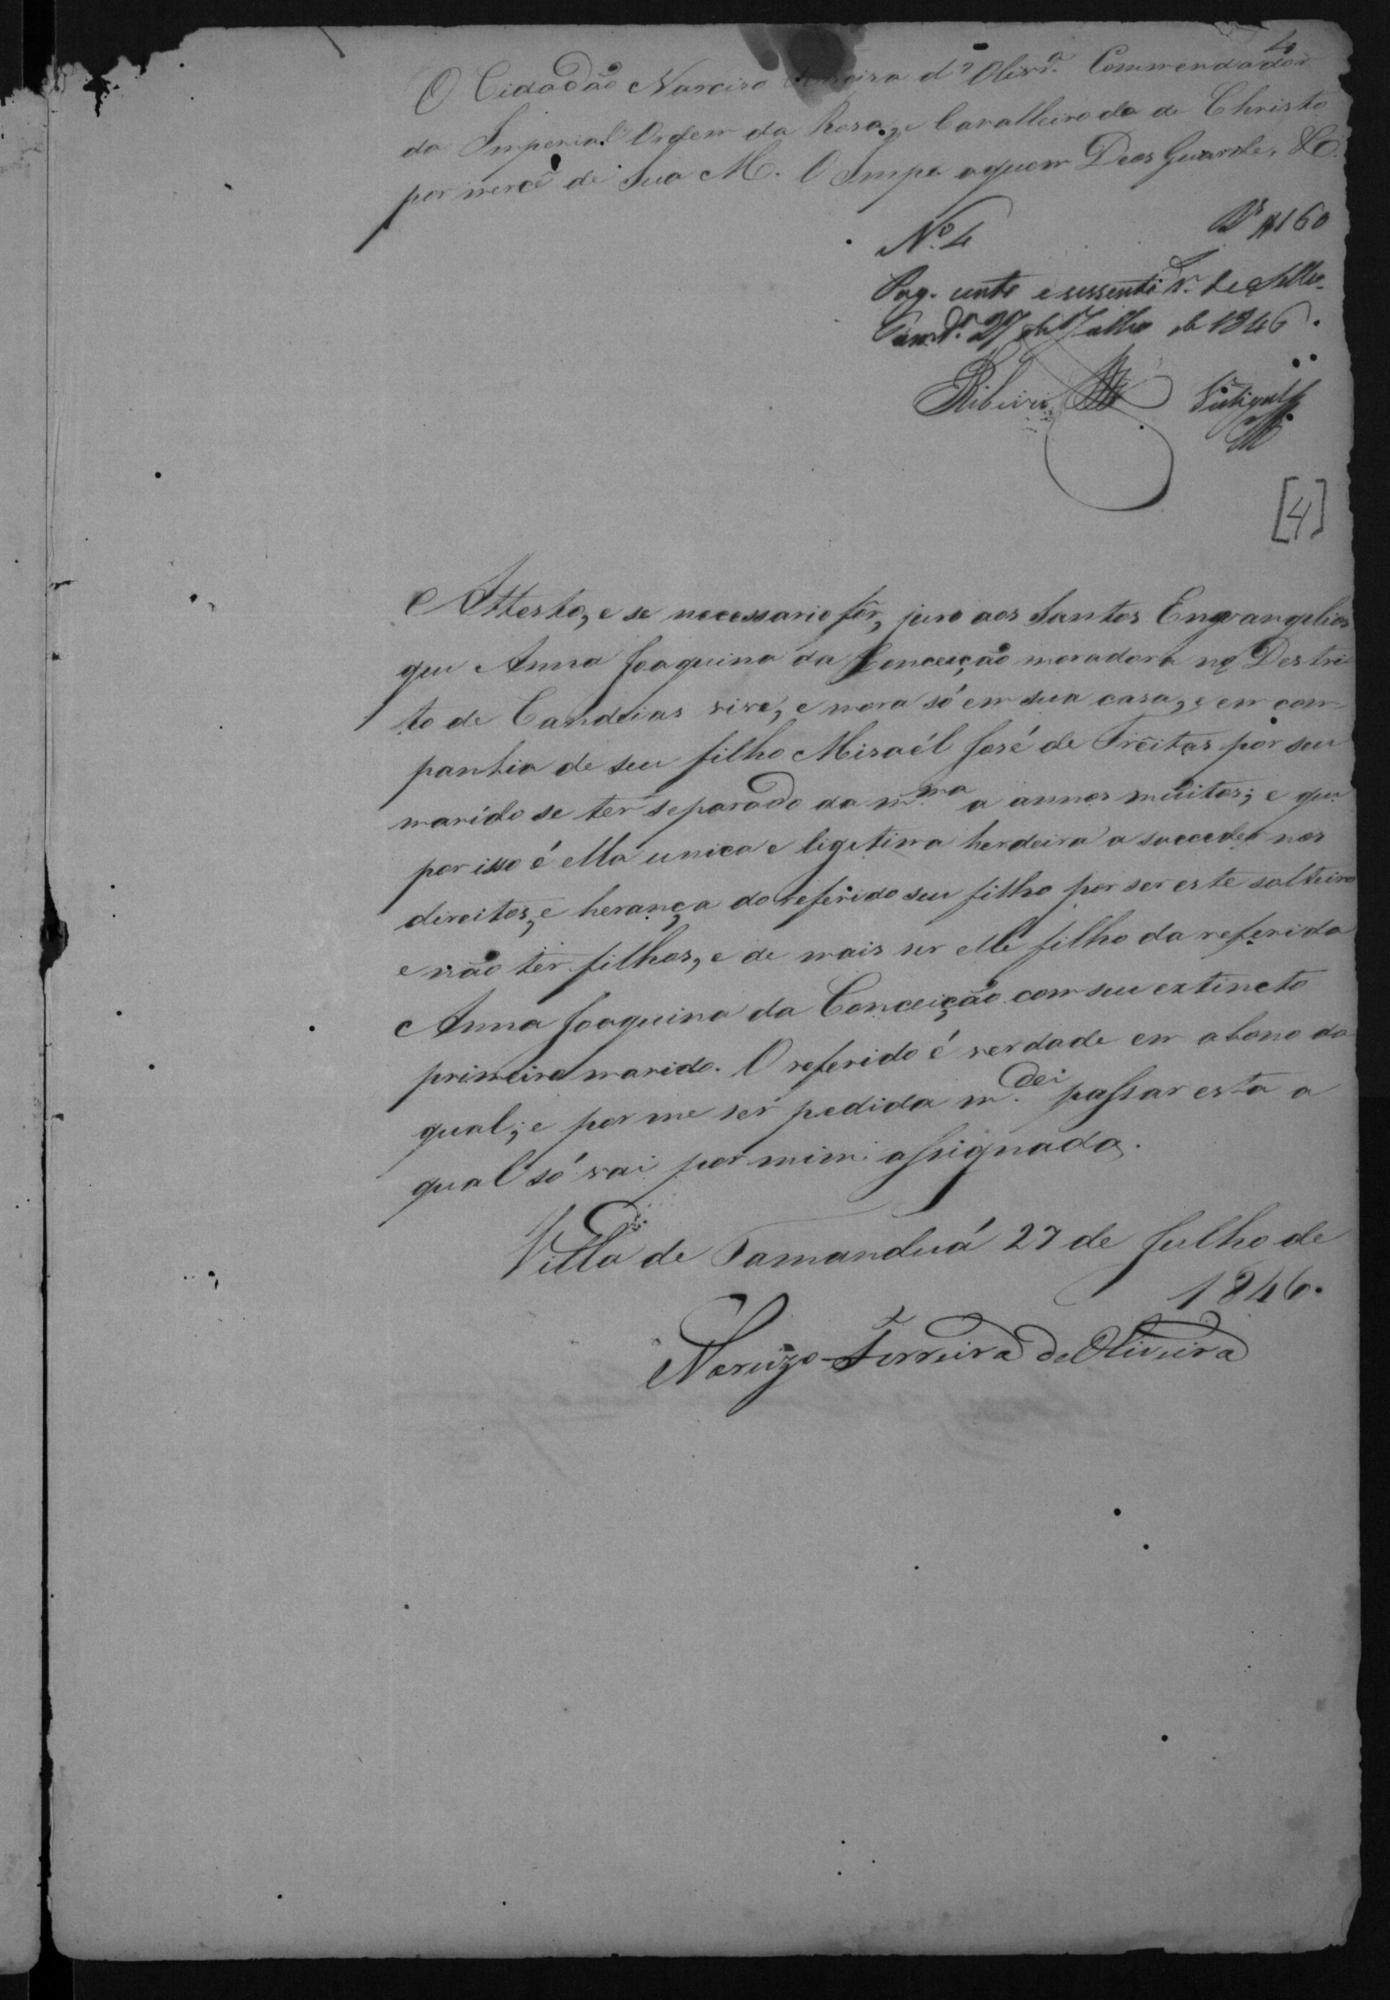 4
O Cidadão Narciso Ferreira d'Olivr.ª Commendador
da Imperial Ordem da Rosa, e Cavalleiro da de Christo
por mercê de Sua M. O Impe. aquem Deos Guarde, &C.
N.º 4 Rs $160
Pag. cento e sessenta rs. de Sello.
Tam.dª 27 de Julho de 1846.
Ribeiro
[4]
Attesto, e se necessario fôr, juro aos Santos Engvangelios
que Anna Joaquina da Conceição moradora no Destri
to de Candeias vive, e mora só em sua casa, e em com-
panhia de seu filho Misaél José de Freitas por seu
marido se ter separado da m.ma a annos muitos; e que
por isso é ella unica e ligitima herdeira a succeder nos
direitos, e herança do referido seu filho por ser este solteiro
e não ter filhos, e de mais ser elle filho da referida
Anna Joaquina da Conceição com seu extincto
primeiro marido. O referido é verdade em abono da
qual; e por me ser pedida m.dei passar esta a
qual só vai por mim assignada.
Villa de Tamanduá 27 de Julho de
1846.
Narcizo Ferreira de Oliveira